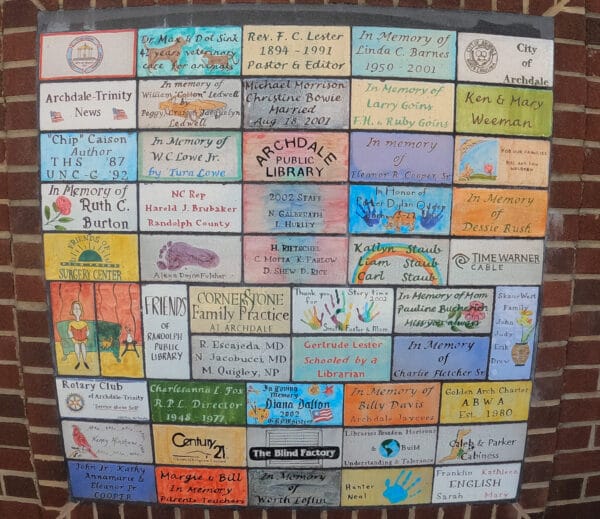 Dr. Max & Dol Sink
42 years veterinary
care for animals
Rev. F. C. Lester
1894 - 1991
Pastor & Editor
In Memory of
Linda C. Barnes
1950 - 2001
City
of
Archdale
Archdale-Trinity
News
In memory of
William "Cotton" Ledwell
by
Peggy, Jacquelyn
Ledwell
Michael Morrison
Christine Bowie
Married
Aug. 18, 2001
In Memory of
Larry Goins
F.H. & Ruby Goins
Ken & Mary
Weeman
"Chip" Caison
Author
THS '87
UNC-G '92
In Memory of
W C Lowe Jr.
by Tura Lowe
ARCHDALE
PUBLIC
LIBRARY
In memory
of
Eleanor R. Cooper, Sr.
FOR OUR FAMILIES
In Memory of
Ruth C.
Burton
NC Rep
Harold J. Brubaker
Randolph County
2002 STAFF
N. GALBREATH
L. HURLEY
In Honor of
Dylan
In Memory of
Dessie Rush
FRIENDS OF
SURGERY CENTER
Alexa Dayne Fulcher
H. RIETSCHEL
C. MOTTA K. FARLOW
D. SHEW D. RICE
Katlyn Staub
Liam Staub
Carl Staub
TIME WARNER
CABLE
FRIENDS
OF
RANDOLPH
PUBLIC
LIBRARY
CORNERSTONE
Family Practice
AT ARCHDALE
Thank you
for
Story time
2002
In Memory of Mom
Pauline Bucherich
Miss you always
Family
John
Judy
Erik
Drew
R. Escajeda, MD
N. Jacobucci, MD
M. Quigley, NP
Gertrude Lester
Schooled by a
Librarian
In Memory
of
Charlie Fletcher Sr.
Rotary Club
of Archdale-Trinity
"Service Above Self"
Charlesanna L. Fox
R.P.L. Director
1948 - 1977
In loving
memory
Diana Dalton
2002
In Memory of
Billy Davis
Archdale Jaycees
Golden Arch Charter
A B W A
Est. 1980
Century
21
The Blind Factory
Libraries Broaden Horizons
& Build
Understanding & Tolerance
Caleb & Parker
Cabiness
John Jr. Kathy
Annamarie &
Eleanor Jr.
COOPER
Margie & Bill
In Memory
Parents Teachers
In Memory
of
Worth Loflin
Hunter
Neal
Franklin Kathleen
ENGLISH
Sarah Mary